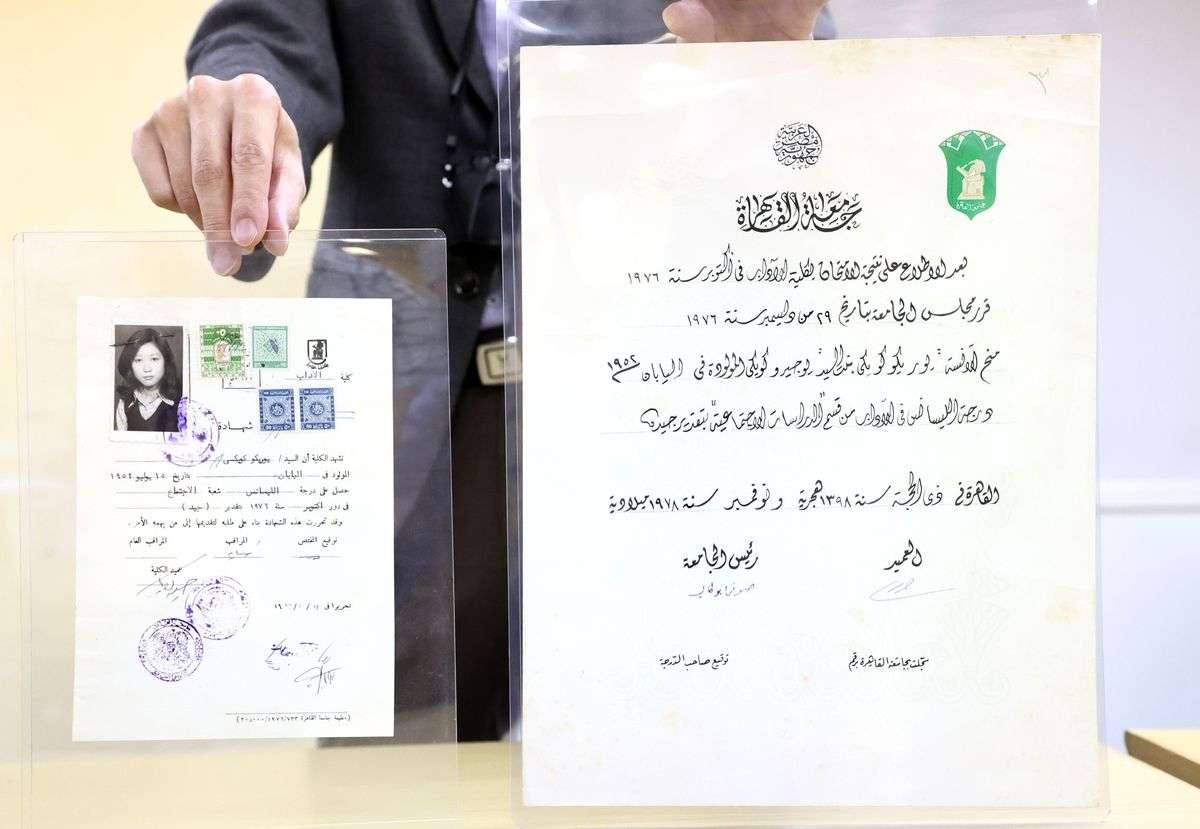 كلية الآداب
شهادة
تشهد الكلية أن السيد / يوريكو كويكى
المولود في اليابان بتاريخ ١٥ يوليو ١٩٥٢
حصل على درجة الليسانس شعبة الاجتماع
في دور اكتوبر سنة ١٩٧٦ بتقدير (جيد)
وقد تحررت هذه الشهادة بناء على طلبه لتقديمها إلى من يهمه الأمر .
توقيع المختص المراقب المراقب العام
عميد الكلية
تحريرا في
(مطبعة جامعة القاهرة ٢٠٠٠٠/١٩٧٦/٧٣٣)
٣
جمهورية مصر العربية
جامعة القاهرة
جامعة القاهرة
بعد الاطلاع على نتيجة الامتحان بكلية الآداب فى أكتوبر سنة ١٩٧٦
قرر مجلس الجامعة بتاريخ ٢٩ من ديسمبر سنة ١٩٧٦
منح الآنسة يوريكو كويكى المولودة فى اليابان ١٩٥٢
درجة الليسانس فى الآداب من قسم الدراسات الاجتماعية بتقدير جيد
القاهرة فى ذى الحجة سنة ١٣٩٨ هجرية و نوفمبر سنة ١٩٧٨ ميلادية
العميد رئيس الجامعة
سجلت بجامعة القاهرة برقم توقيع صاحب الدرجة